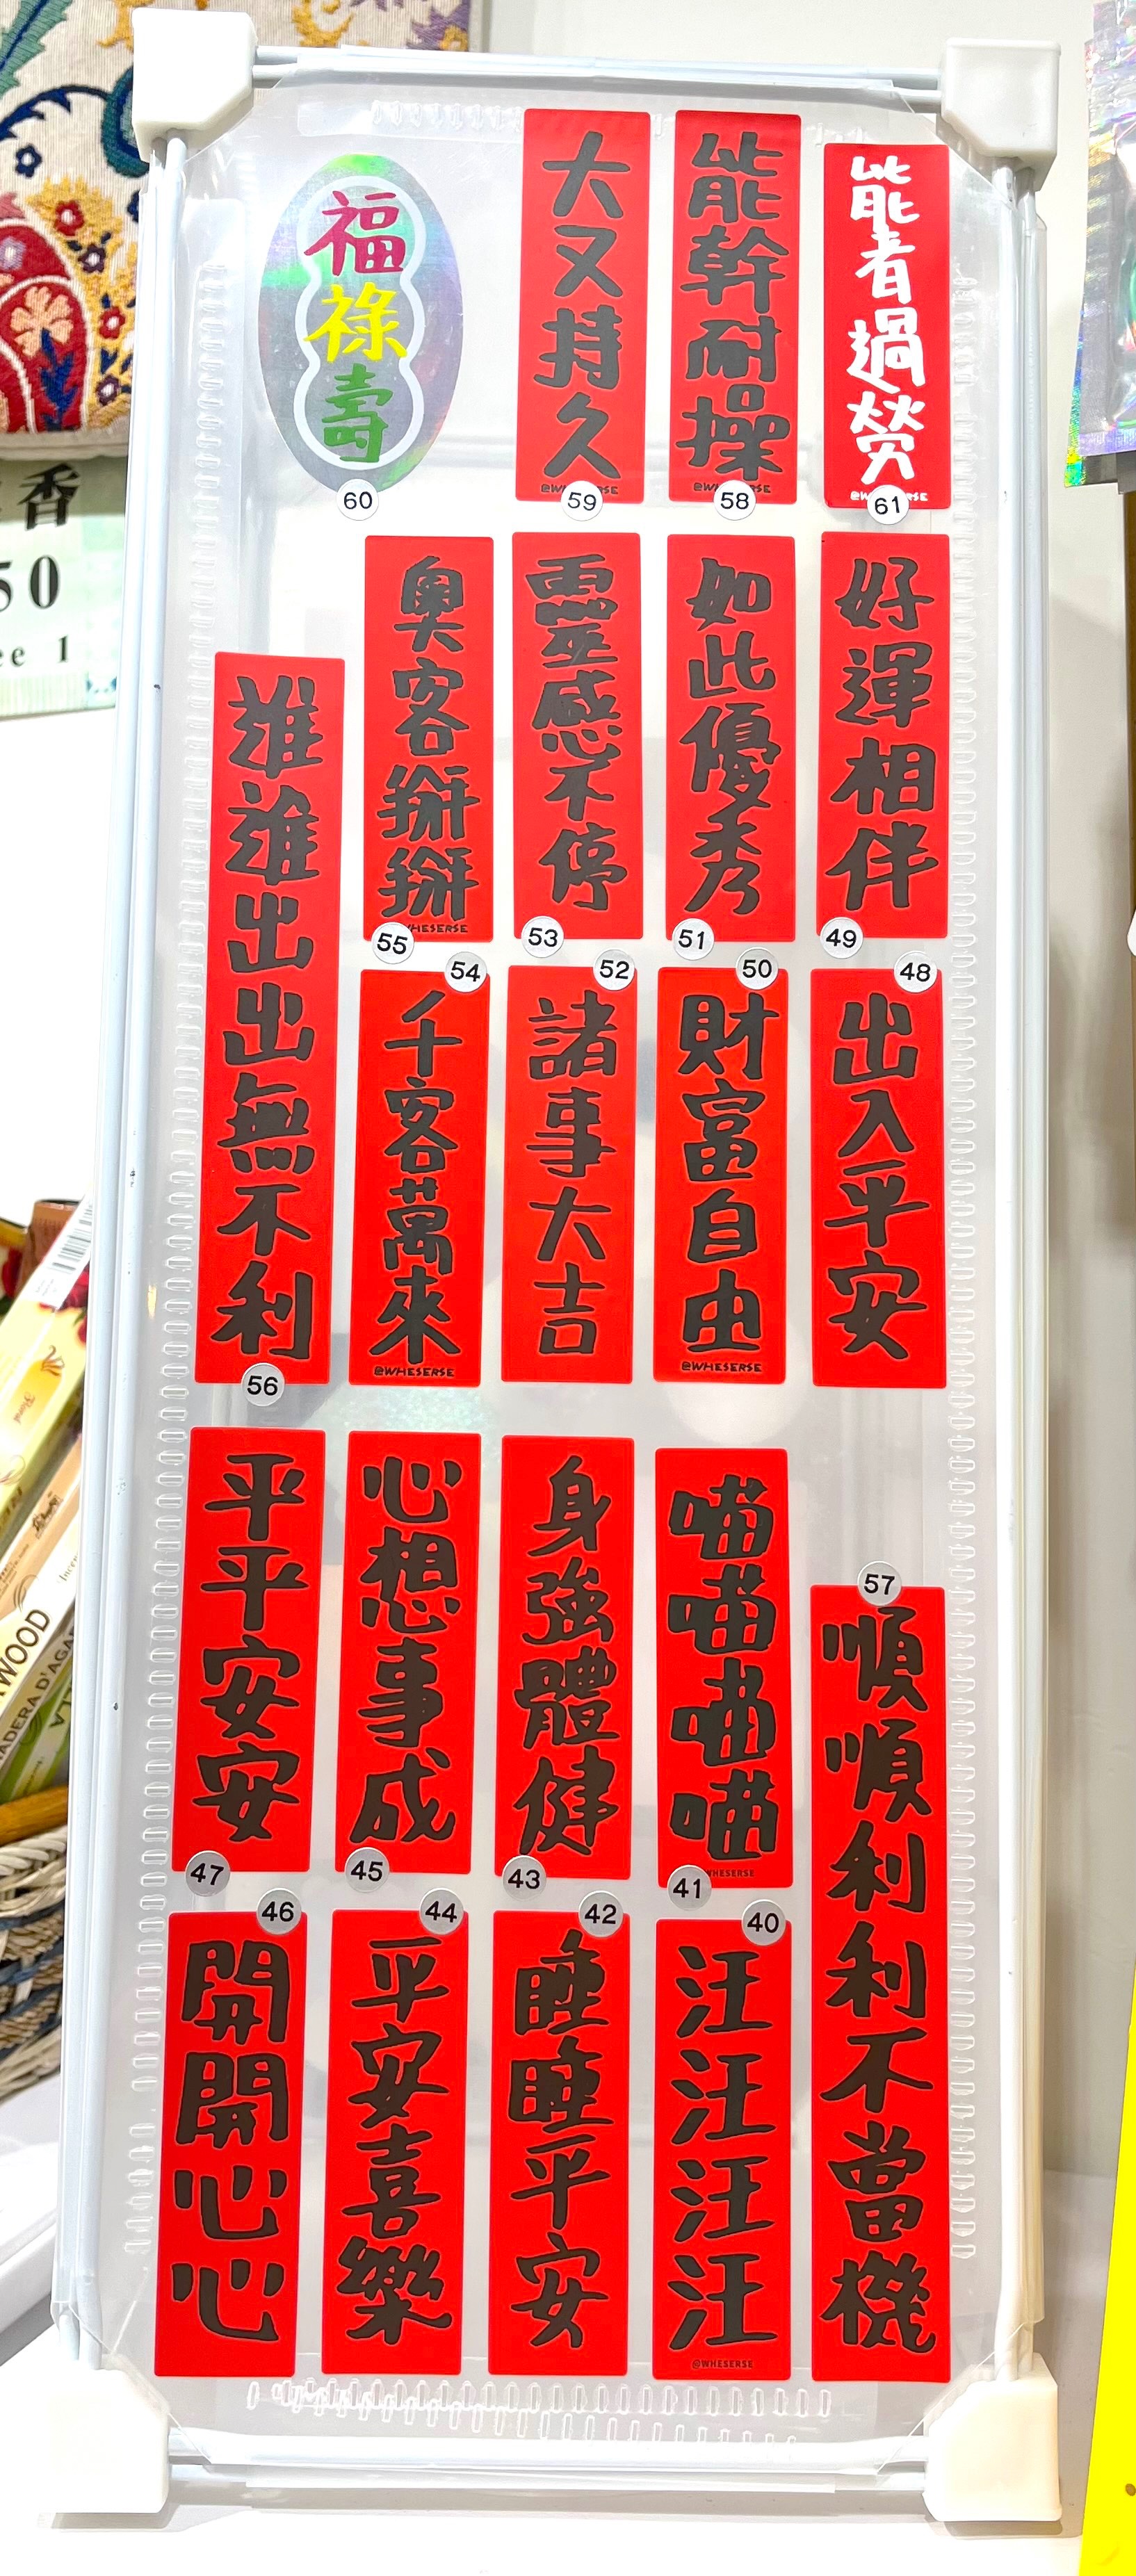 福
祿
壽
60
大又持久
@WHESERSE
59
能幹耐操
58
能者過勞
61
奧客掰掰
WHESERSE
55
靈感不停
53
如此優秀
51
好運相伴
49
誰誰出出無不利
56
54
千客萬來
@WHESERSE
52
諸事大吉
50
財富自由
@WHESERSE
48
出入平安
平平安安
47
心想事成
45
身強體健
43
喵喵喵喵
WHESERSE
41
57
順順利利不當機
46
開開心心
44
平安喜樂
42
睡睡平安
40
汪汪汪汪
@WHESERSE
香
50
ce 1
WOOD